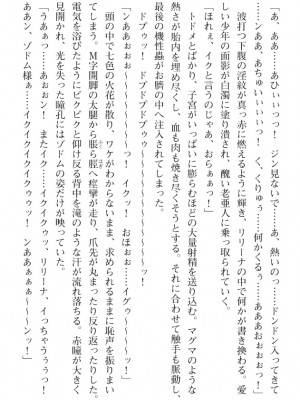 「あ、ああ……あひぃいっっ！　ジン見ないで……あ、熱いのっ！　ドンドン入ってきて
……ンああ、あちゅいいいっ！　く、くりゅぅ……何かくるぅ……あああおぉぉぉっ！」
　波打つ下腹の淫紋が真っ赤に燃えるように輝き、リリーナの中で何かが書き換わる。愛
しい少年の面影が白濁に塗り潰され、醜い老亜人に乗っ取られていく。
「ほれぇ、イクと言うのじゃ、おらぁぁっ！」
　トドメとばかり、子宮がいっぱいに膨らむほどの大量射精を送り込む。マグマのような
熱さが胎内を埋め尽くし、血も肉も焼き尽くそうとする。それに合わせて触手も脈動し、
最後の機性蟲がお臍の中へ注入されてしまう。
　ドプゥッ！　ドプドプドプゥゥ〜〜〜〜〜〜〜ッ！
「ンああぉぉ〜〜〜〜〜〜〜っ！　イクッ！　おほぉぉ……イグゥ〜〜〜〜ッ！」
　頭の中で七色の火花が散り、ワケがわからないまま、求められるままに恥声を振りまい
てしまう。Ｍ字開脚の太腿から脹ら脛へ痙攣が走り、爪先が丸まったり反り返ったりした。
電気を浴びたようにビクビクと仰け反る背中を滝のような汗が流れ落ちる。赤瞳が大きく
見開かれ、光を失った瞳孔にはゾドムの姿だけが映っていた。
「うあぁっ……あぉぉン！　またイク……イクイクゥッ、リリーナ、イっちゃうぅぅっ！
あンあん、ゾドム様ぁ……イクイクイクゥゥッ！　ンああぁぁぁ〜〜〜〜ンッ！」